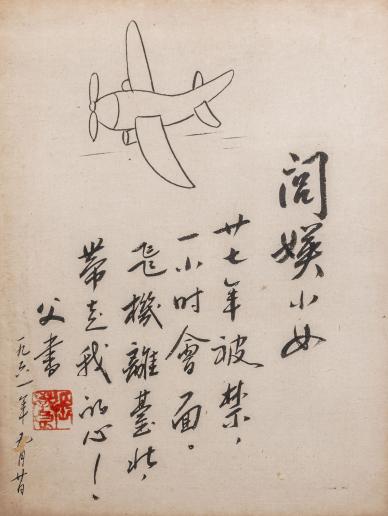 闾媖小女
廿七年被禁，
一小时會面。
飛機離臺北，
帶走我的心！
父書
一九六一年九月廿日